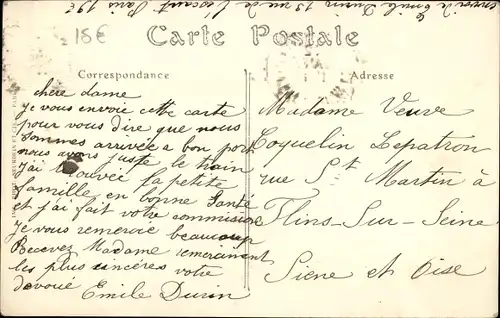 envoi de Emile Durin 13 rue de l'escaut Paris 19e
18€
Carte Postale
Correspondance
Adresse
chere dame
Je vous envoie cette carte
pour vous dire que nous
sommes arrivée a bon port
nous avons juste le train
j'ai trouvée la petite
famille en bonne Santé
et j'ai fait votre commission
Je vous remercie beaucoup
Recevez Madame remerciment
les plus sincéres votre
devoué Emile Durin
Madame Veuve
Coquelin Lepatron
rue St Martin à
Flins-Sur-Seine
Siene et Oise